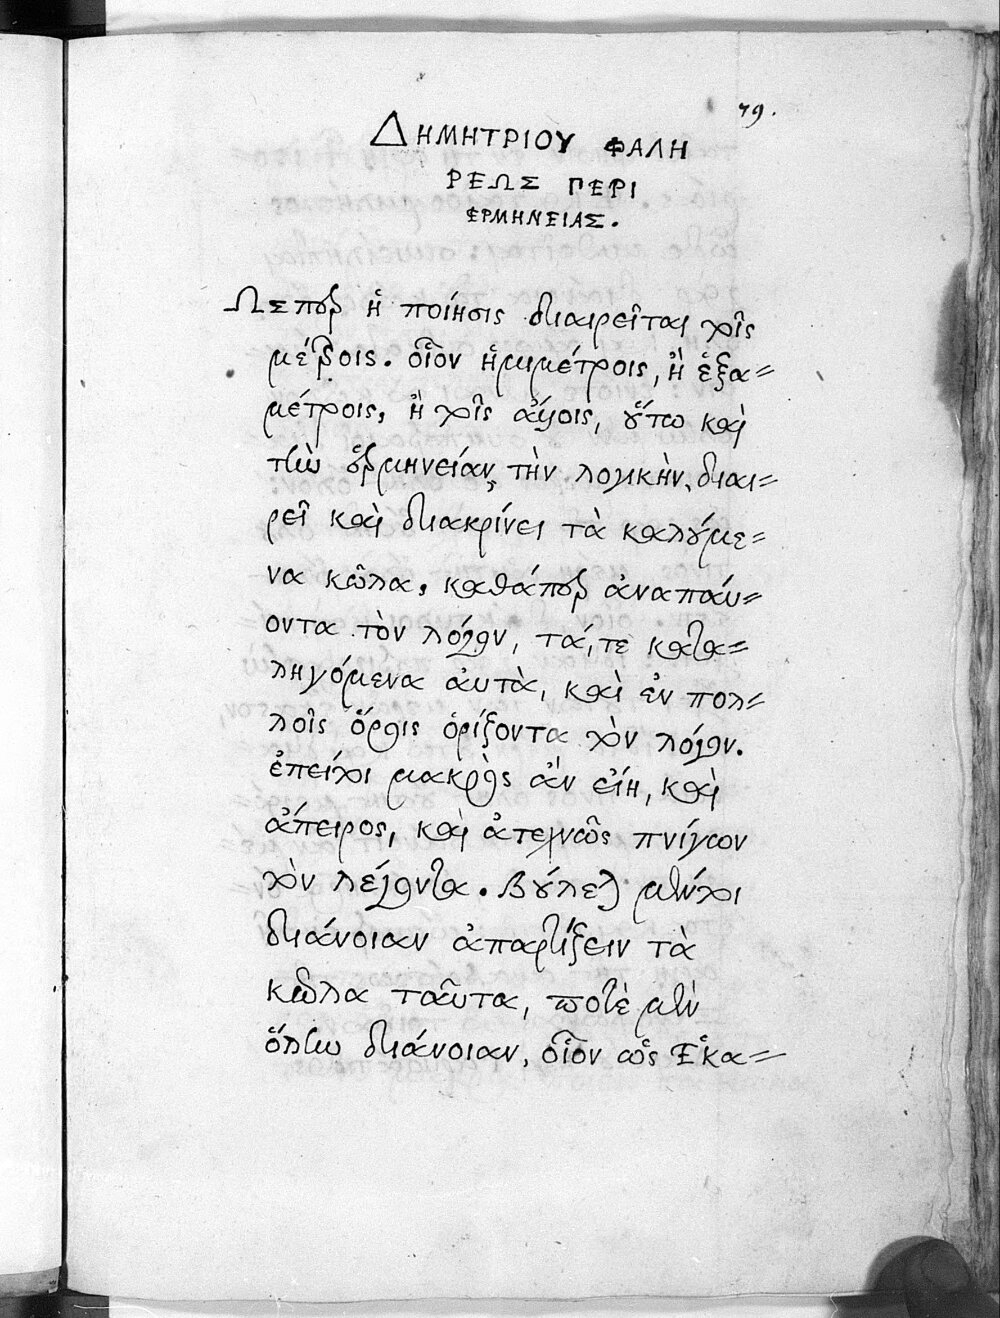 79.
ΔΗΜΗΤΡΙΟΥ ΦΑΛΗ
ΡΕΩΣ ΠΕΡΙ
ΕΡΜΗΝΕΙΑΣ.
Ὥσπερ ἡ ποίησις διαιρεῖται τοῖς
μέτροις. οἷον ἡμιμέτροις, ἢ ἑξα=
μέτροις, ἢ τοῖς ἄλλοις, οὕτω καὶ
τὴν ἑρμηνείαν τὴν λογικὴν, διαι=
ρεῖ καὶ διακρίνει τὰ καλούμε=
να κῶλα, καθάπερ ἀναπαύ=
οντα τὸν λόγον, τά, τε κατα=
ληγόμενα αὐτὰ, καὶ ἐν πολ=
λοῖς ὅροις ὁρίζοντα τὸν λόγον.
ἐπείτοι μακρὸς ἂν εἴη, καὶ
ἄπειρος, καὶ ἀτεχνῶς πνίγων
τὸν λέγοντα. Βούλεται μέντοι
διάνοιαν ἀπαρτίζειν τὰ
κῶλα ταῦτα, ποτὲ μὲν
ὅλην διάνοιαν, οἷον ὡς Ἑκα=